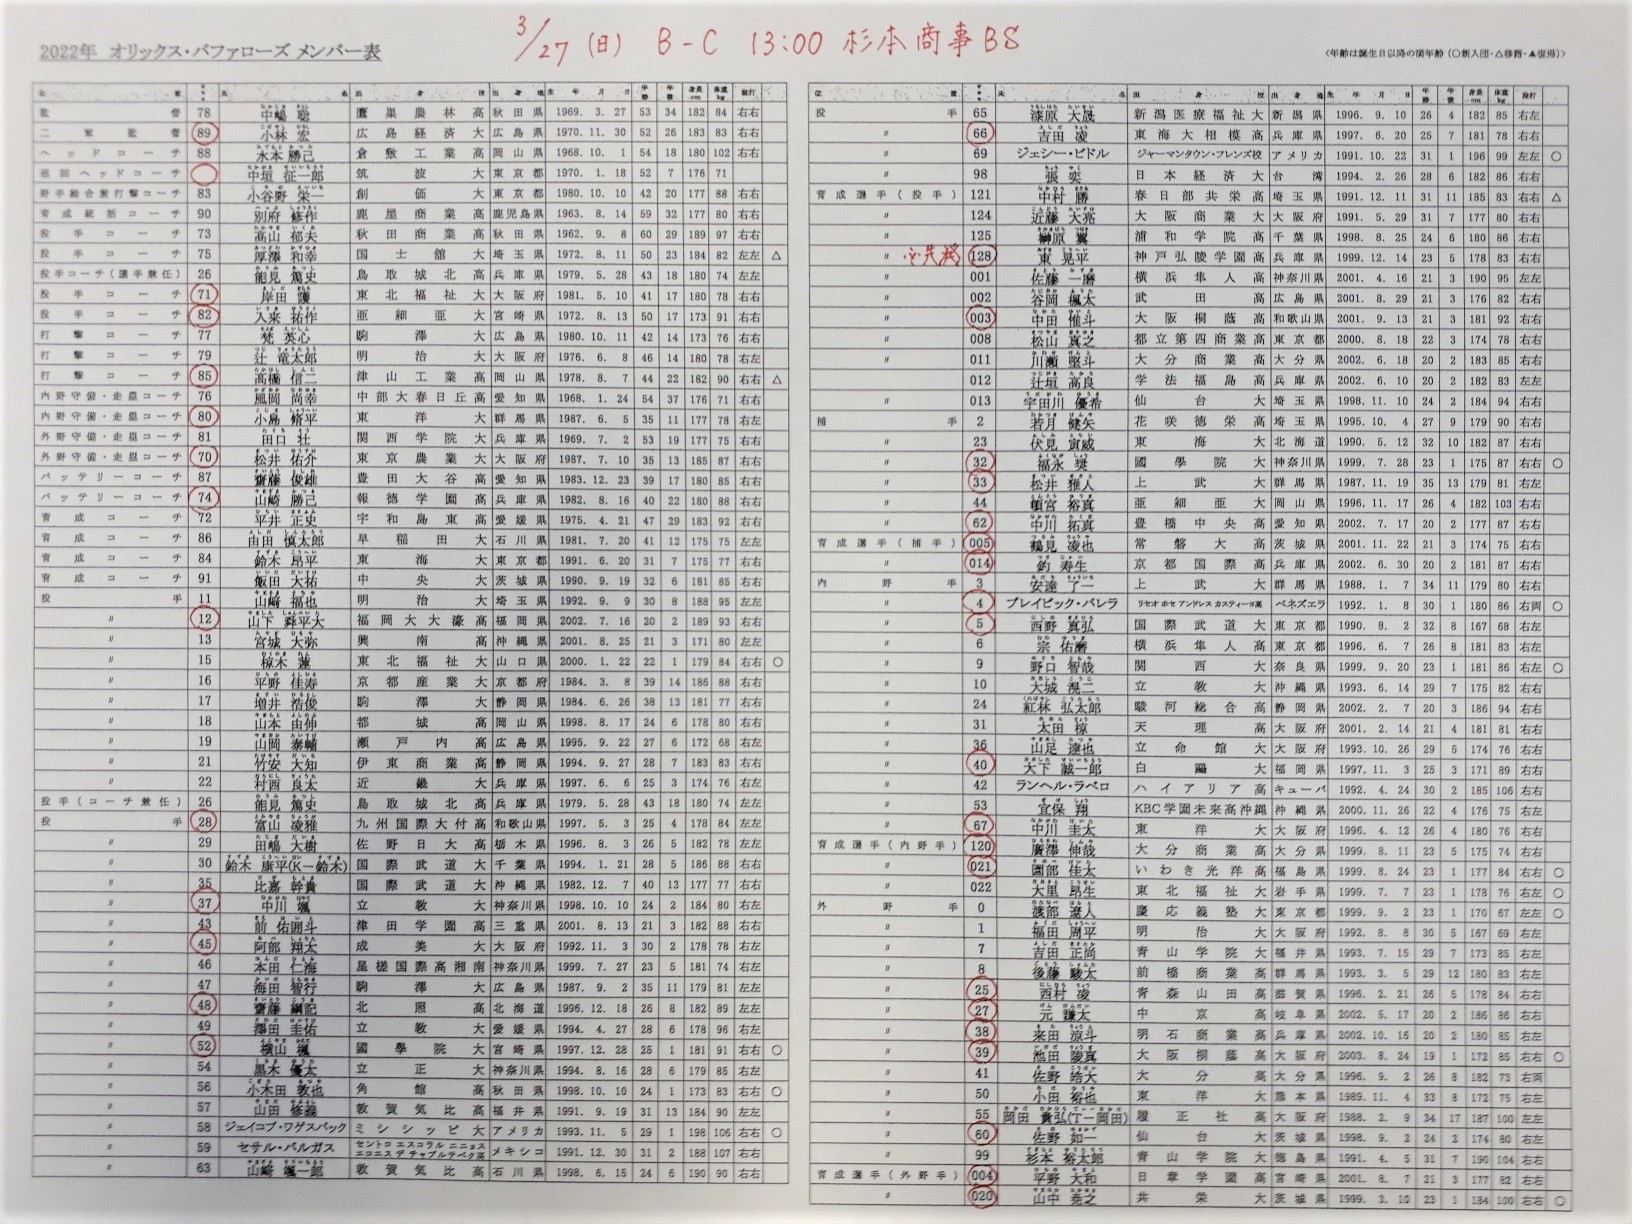 3/27 (日) B-C 13:00 杉本商事BS
2022年 オリックス・バファローズ メンバー表
<年齢は誕生日以降の満年齢(○新入団・△移籍・▲復帰)>
監督 78 中嶋 聡 鷹巣農林高 秋田県 1969. 3. 27 53 34 182 84 右右
二軍監督 89 小林 宏 広島経済大 広島県 1970. 11. 30 52 26 183 83 右右
ヘッドコーチ 88 水本 勝己 倉敷工業高 岡山県 1968. 10. 1 54 18 180 102 右右
巡回ヘッドコーチ 中垣 征一郎 筑波大 東京都 1970. 1. 18 52 7 176 71
野手総合兼打撃コーチ 83 小谷野 栄一 創価大 東京都 1980. 10. 10 42 20 177 88 右右
育成統括コーチ 90 別府 修作 鹿屋商業高 鹿児島県 1963. 8. 14 59 32 177 80 右右
投手コーチ 73 高山 郁夫 秋田商業高 秋田県 1962. 9. 8 60 29 189 97 右右
投手コーチ 75 厚澤 和幸 国士舘大 埼玉県 1972. 8. 11 50 23 184 82 左左 △
投手コーチ(選手兼任) 26 能見 篤史 鳥取城北高 兵庫県 1979. 5. 28 43 18 180 74 左左
投手コーチ 71 岸田 護 東北福祉大 大阪府 1981. 5. 10 41 17 180 78 右右
投手コーチ 82 入来 祐作 亜細亜大 宮崎県 1972. 8. 13 50 17 173 91 右右
打撃コーチ 77 梵 英心 駒澤大 広島県 1980. 10. 11 42 14 173 76 右右
打撃コーチ 79 辻 竜太郎 明治大 大阪府 1976. 6. 8 46 14 180 78 右左
打撃コーチ 85 高橋 信二 津山工業高 岡山県 1978. 8. 7 44 22 182 90 右右 △
内野守備・走塁コーチ 76 風岡 尚幸 中部大春日丘高 愛知県 1968. 1. 24 54 37 176 71 右右
内野守備・走塁コーチ 80 小島 脩平 東洋大 群馬県 1987. 6. 5 35 11 177 78 右左
外野守備・走塁コーチ 81 田口 壮 関西学院大 兵庫県 1969. 7. 2 53 19 177 75 右右
外野守備・走塁コーチ 70 松井 佑介 東京農業大 大阪府 1987. 7. 10 35 13 185 87 右右
バッテリーコーチ 87 齋藤 俊雄 豊田大谷高 愛知県 1983. 12. 23 39 17 180 85 右右
バッテリーコーチ 74 山崎 勝己 報徳学園高 兵庫県 1982. 8. 16 40 22 180 88 右右
育成コーチ 72 平井 正史 宇和島東高 愛媛県 1975. 4. 21 47 29 183 92 右右
育成コーチ 86 由田 慎太郎 早稲田大 石川県 1981. 7. 20 41 12 175 75 左左
育成コーチ 84 鈴木 昂平 東海大 東京都 1991. 6. 20 31 7 175 77 右右
育成コーチ 91 飯田 大祐 中央大 茨城県 1990. 9. 19 32 6 181 85 右右
投手 11 山﨑 福也 明治大 埼玉県 1992. 9. 9 30 8 188 95 左左
〃 12 山下 舜平大 福岡大大濠高 福岡県 2002. 7. 16 20 2 189 93 右右
〃 13 宮城 大弥 興南高 沖縄県 2001. 8. 25 21 3 171 80 左左
〃 15 椋木 蓮 東北福祉大 山口県 2000. 1. 22 22 1 179 84 右右 ○
〃 16 平野 佳寿 京都産業大 京都府 1984. 3. 8 39 14 186 88 右右
〃 17 増井 浩俊 駒澤大 静岡県 1984. 6. 26 38 13 181 77 右右
〃 18 山本 由伸 都城高 岡山県 1998. 8. 17 24 6 178 80 右右
〃 19 山岡 泰輔 瀬戸内高 広島県 1995. 9. 22 27 6 172 68 右左
〃 21 竹安 大知 伊東商業高 静岡県 1994. 9. 27 28 7 183 83 右右
〃 22 村西 良太 近畿大 兵庫県 1997. 6. 6 25 3 174 76 右左
投手(コーチ兼任) 26 能見 篤史 鳥取城北高 兵庫県 1979. 5. 28 43 18 180 74 左左
投手 28 富山 凌雅 九州国際大付高 和歌山県 1997. 5. 3 25 4 178 84 左左
〃 29 田嶋 大樹 佐野日大高 栃木県 1996. 8. 3 26 5 182 78 左左
〃 30 鈴木 康平(K-鈴木) 国際武道大 千葉県 1994. 1. 21 28 5 186 88 右右
〃 35 比嘉 幹貴 国際武道大 沖縄県 1982. 12. 7 40 13 177 77 右右
〃 37 中川 颯 立教大 神奈川県 1998. 10. 10 24 2 184 80 右左
〃 43 前 佑囲斗 津田学園高 三重県 2001. 8. 13 21 3 182 88 右右
〃 45 阿部 翔太 成美大 大阪府 1992. 11. 3 30 2 178 78 右左
〃 46 本田 仁海 星槎国際高湘南 神奈川県 1999. 7. 27 23 5 181 74 右左
〃 47 海田 智行 駒澤大 広島県 1987. 9. 2 35 11 179 81 左左
〃 48 齋藤 綱記 北照高 北海道 1996. 12. 18 26 8 182 89 左左
〃 49 澤田 圭佑 立教大 愛媛県 1994. 4. 27 28 6 178 96 右左
〃 52 横山 楓 國學院大 宮崎県 1997. 12. 28 25 1 181 91 右右 ○
〃 54 黒木 優太 立正大 神奈川県 1994. 8. 16 28 6 179 85 右左
〃 56 小木田 敦也 角館高 秋田県 1998. 10. 10 24 1 173 83 右右 ○
〃 57 山田 修義 敦賀気比高 福井県 1991. 9. 19 31 13 184 90 左左
〃 58 ジェイコブ・ワゲスパック ミシシッピ大 アメリカ 1993. 11. 5 29 1 198 106 右右 ○
〃 59 セサル・バルガス セントロ エスコラル ニニョス エロエス デ チャプルテペク高 メキシコ 1991. 12. 30 31 2 188 107 右右
〃 63 山﨑 颯一郎 敦賀気比高 石川県 1998. 6. 15 24 6 190 90 右右
投手 65 漆原 大晟 新潟医療福祉大 新潟県 1996. 9. 10 26 4 182 85 右左
〃 66 吉田 凌 東海大相模高 兵庫県 1997. 6. 20 25 7 181 78 右右
〃 69 ジェシー・ビドル ジャーマンタウン・フレンズ校 アメリカ 1991. 10. 22 31 1 196 99 左左 ○
〃 98 張 奕 日本経済大 台湾 1994. 2. 26 28 6 182 86 右右
育成選手(投手) 121 中村 勝 春日部共栄高 埼玉県 1991. 12. 11 31 11 185 83 右右 △
〃 124 近藤 大亮 大阪商業大 大阪府 1991. 5. 29 31 7 177 80 右右
〃 125 榊原 翼 浦和学院高 千葉県 1998. 8. 25 24 6 180 86 右右
〃 128 東 晃平 神戸弘陵学園高 兵庫県 1999. 12. 14 23 5 178 83 右右
〃 001 佐藤 一磨 横浜隼人高 神奈川県 2001. 4. 16 21 3 190 95 左左
〃 002 谷岡 楓太 武田高 広島県 2001. 8. 29 21 3 176 82 右右
〃 003 中田 惟斗 大阪桐蔭高 和歌山県 2001. 9. 13 21 3 181 92 右右
〃 008 松山 真之 都立第四商業高 東京都 2000. 8. 18 22 3 174 78 右右
〃 011 川瀬 堅斗 大分商業高 大分県 2002. 6. 18 20 2 183 85 右右
〃 012 辻垣 高良 学法福島高 兵庫県 2002. 6. 10 20 2 182 83 左左
〃 013 宇田川 優希 仙台大 埼玉県 1998. 11. 10 24 2 184 94 右右
捕手 2 若月 健矢 花咲徳栄高 埼玉県 1995. 10. 4 27 9 179 90 右右
〃 23 伏見 寅威 東海大 北海道 1990. 5. 12 32 10 182 87 右右
〃 32 福永 奨 國學院大 神奈川県 1999. 7. 28 23 1 175 87 右右 ○
〃 33 松井 雅人 上武大 群馬県 1987. 11. 19 35 13 179 81 右左
〃 44 頓宮 裕真 亜細亜大 岡山県 1996. 11. 17 26 4 182 103 右右
〃 62 中川 拓真 豊橋中央高 愛知県 2002. 7. 17 20 2 177 87 右右
育成選手(捕手) 005 鶴見 凌也 常磐大高 茨城県 2001. 11. 22 21 3 174 75 右右
〃 014 釣 寿生 京都国際高 京都府 2002. 6. 30 20 2 181 87 右右
内野手 3 安達 了一 上武大 群馬県 1988. 1. 7 34 11 179 80 右右
〃 4 ブレイビック・バレラ リセオ ホセ アンドレス カスティーヨ高 ベネズエラ 1992. 1. 8 30 1 180 86 右両 ○
〃 5 西野 真弘 国際武道大 東京都 1990. 8. 2 32 8 167 68 右左
〃 6 宗 佑磨 横浜隼人高 東京都 1996. 6. 7 26 8 181 83 右左
〃 9 野口 智哉 関西大 奈良県 1999. 9. 20 23 1 181 86 右左 ○
〃 10 大城 滉二 立教大 沖縄県 1993. 6. 14 29 7 175 82 右右
〃 24 紅林 弘太郎 駿河総合高 静岡県 2002. 2. 7 20 3 186 94 右右
〃 31 太田 椋 天理高 大阪府 2001. 2. 14 21 4 181 81 右右
〃 36 山足 達也 立命館大 大阪府 1993. 10. 26 29 5 174 76 右右
〃 40 大下 誠一郎 白鷗大 福岡県 1997. 11. 3 25 3 171 89 右右
〃 42 ランヘル・ラベロ ハイアリア高 キューバ 1992. 4. 24 30 2 185 106 右右
〃 53 宜保 翔 KBC学園未来高沖縄 沖縄県 2000. 11. 26 22 4 176 75 右左
〃 67 中川 圭太 東洋大 大阪府 1996. 4. 12 26 4 180 76 右右
育成選手(内野手) 120 廣澤 伸哉 大分商業高 大分県 1999. 8. 11 23 5 175 74 右右
〃 021 園部 佳太 いわき光洋高 福島県 1999. 8. 24 23 1 177 84 右右 ○
〃 022 大里 昂生 東北福祉大 岩手県 1999. 7. 7 23 1 178 76 右左 ○
外野手 0 渡部 遼人 慶応義塾大 東京都 1999. 9. 2 23 1 170 67 左左 ○
〃 1 福田 周平 明治大 大阪府 1992. 8. 8 30 5 167 69 右左
〃 7 吉田 正尚 青山学院大 福井県 1993. 7. 15 29 7 173 85 右左
〃 8 後藤 駿太 前橋商業高 群馬県 1993. 3. 5 29 12 180 83 右左
〃 25 西村 凌 青森山田高 滋賀県 1996. 2. 21 26 5 178 84 右右
〃 27 元 謙太 中京高 岐阜県 2002. 5. 17 20 2 186 86 右右
〃 38 来田 涼斗 明石商業高 兵庫県 2002. 10. 16 20 2 180 85 右左
〃 39 池田 陵真 大阪桐蔭高 大阪府 2003. 8. 24 19 1 172 85 右右 ○
〃 41 佐野 皓大 大分高 大分県 1996. 9. 2 26 8 182 73 右両
〃 50 小田 裕也 東洋大 熊本県 1989. 11. 4 33 8 172 75 右左
〃 55 岡田 貴弘(T-岡田) 履正社高 大阪府 1988. 2. 9 34 17 187 100 左左
〃 60 佐野 如一 仙台大 茨城県 1998. 9. 2 24 2 174 80 右左
〃 99 杉本 裕太郎 青山学院大 徳島県 1991. 4. 5 31 7 190 104 右右
育成選手(外野手) 004 平野 大和 日章学園高 宮崎県 2001. 8. 7 21 3 177 82 右右
〃 020 山中 尭之 共栄大 茨城県 1999. 3. 10 23 1 184 100 右右 ○